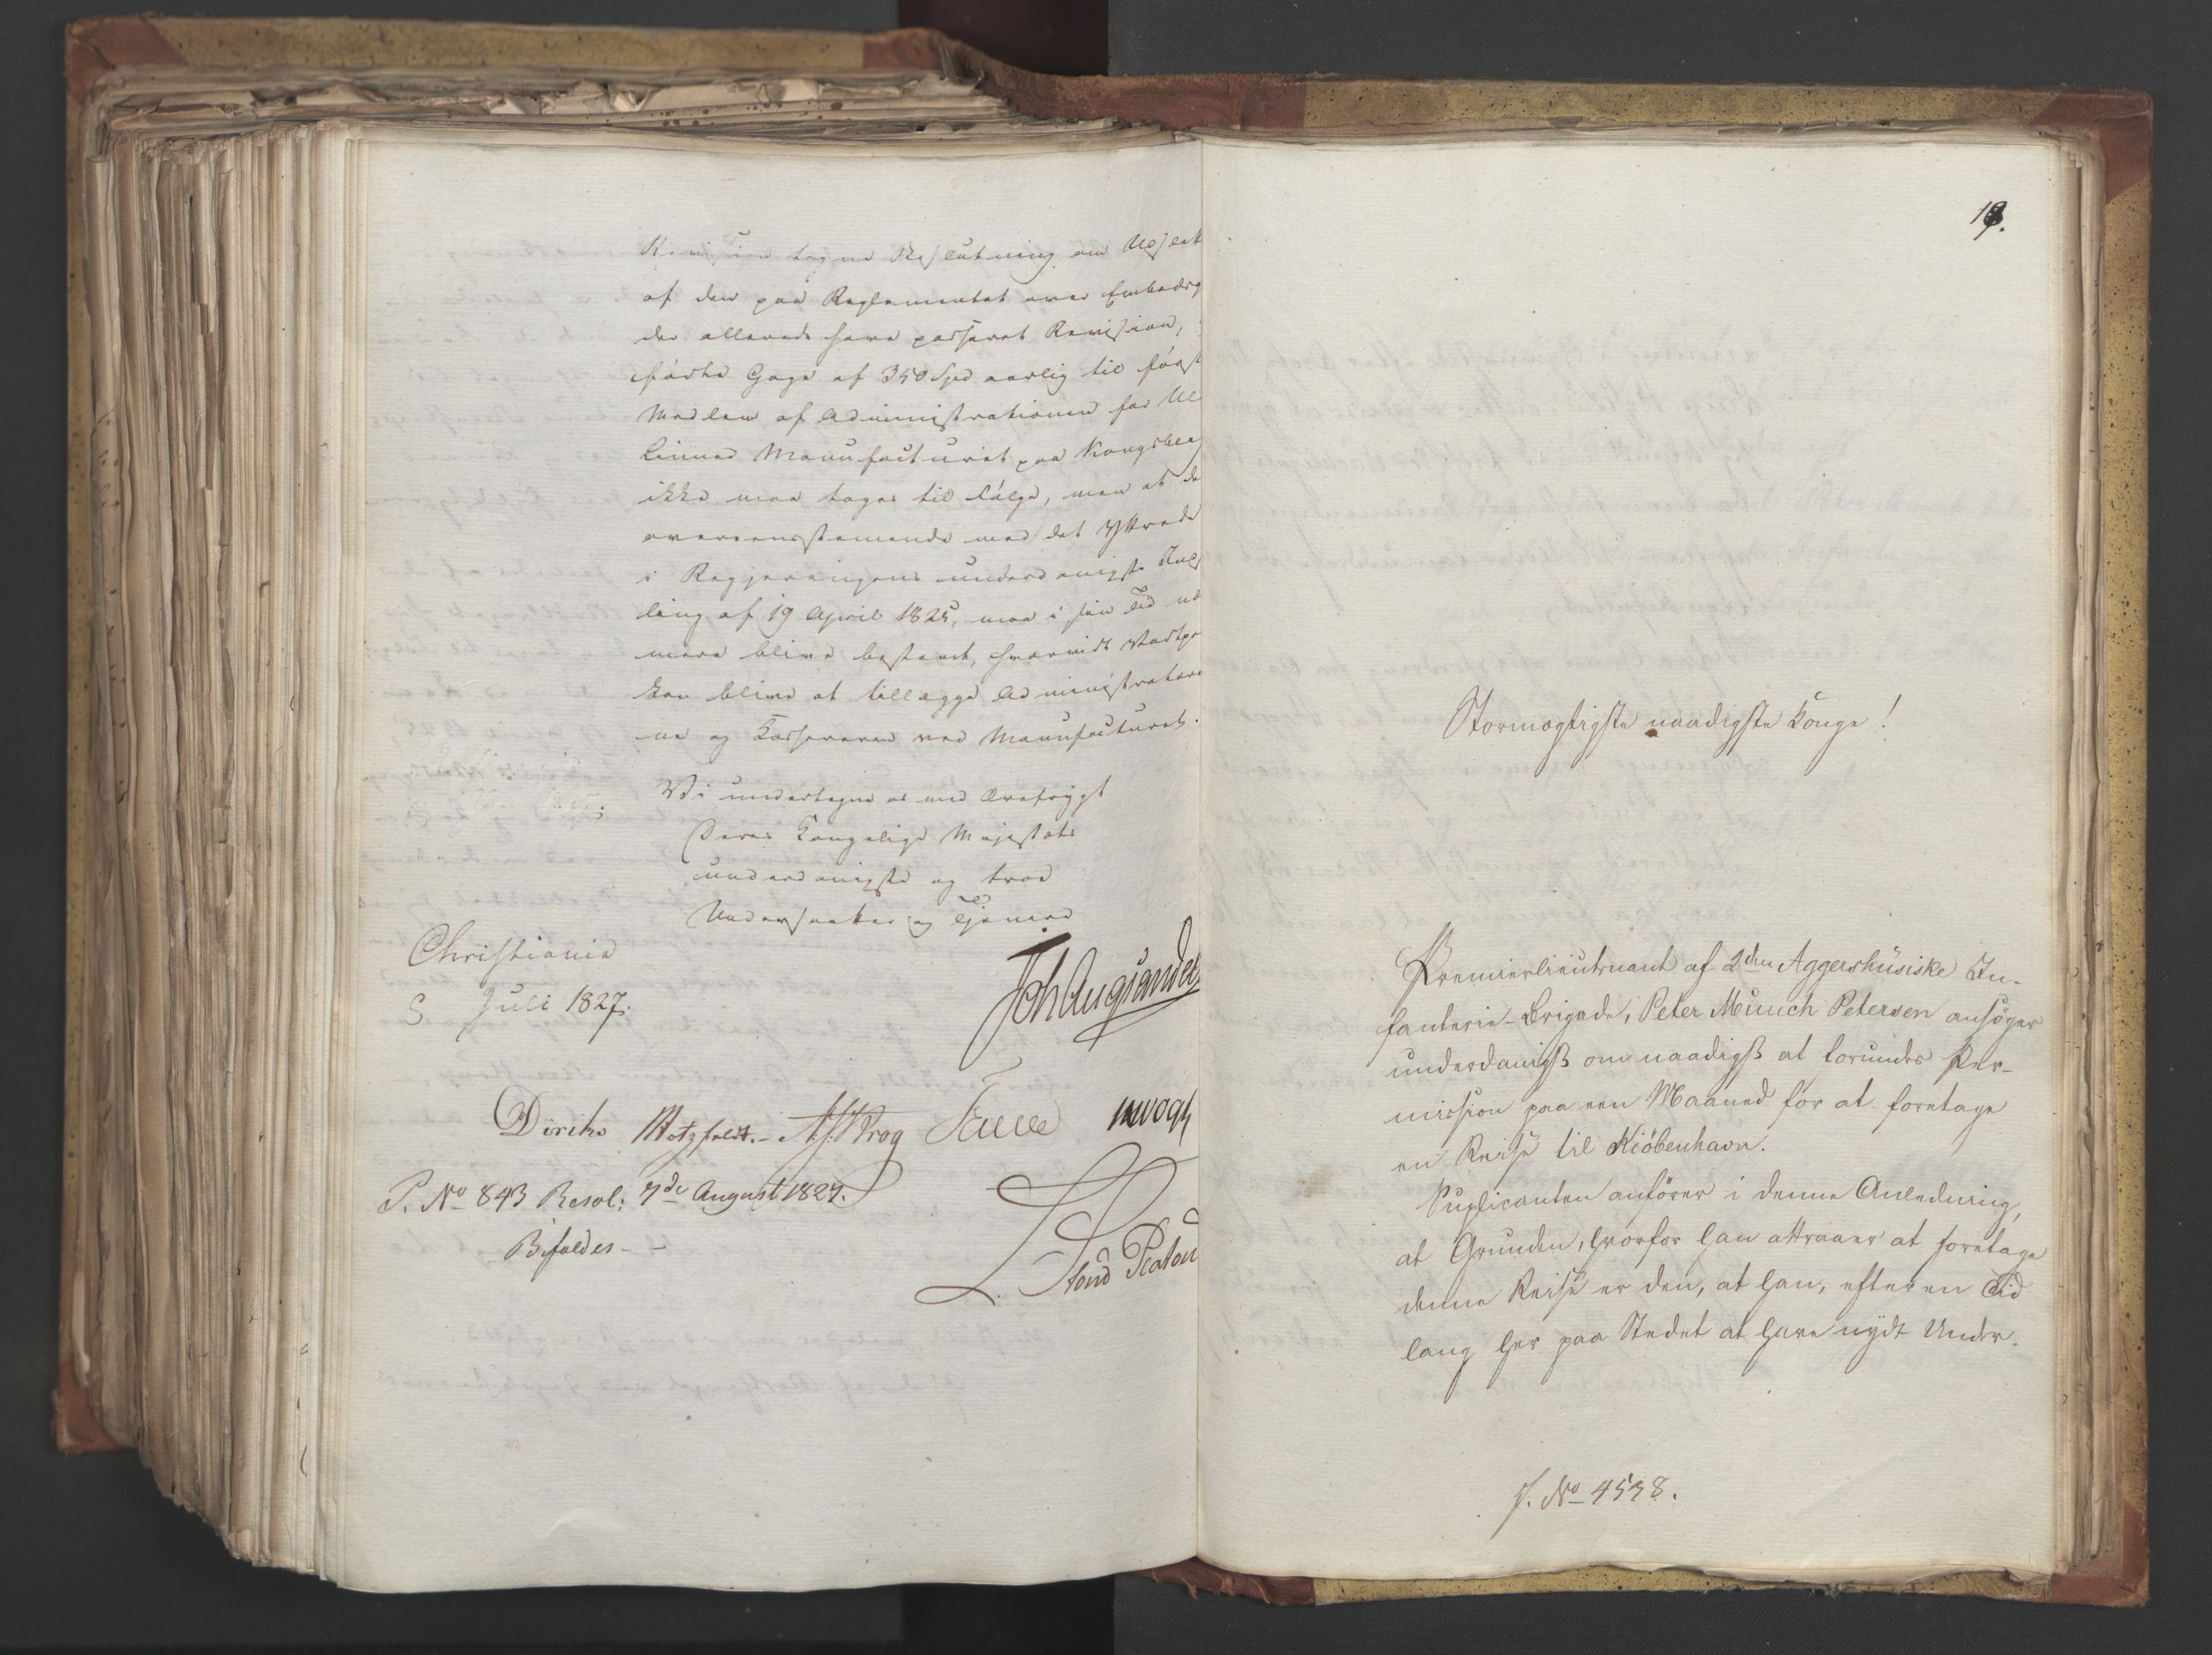 Revision tagne Beslutning om Opslag
af den paa Reglementet over Embeds
der allerede have passeret Revision,
førte Gage af 350 Spd aarlig til først
Medlem af Administrationen for Ul
Linned Manufacturet paa Kongsber
ikke maa tages til Følge, men at de
overeensstemmende med det Yttrede
i Regjeringens underdanigste Inds
ling af 19 April 1825, maa i sin Tid nær
mere blive bestemt, hvorvidt Vartpe
kan blive at tillægge Administratore
ne og Kassereren ved Manufacturet.
Vi undertegne os med Ærefrygt
Deres Kongelige Majestæts
underdanigste og troe
Undersaatter og Tjenere
Christiania
Juli 1827.
Joh Aug Sandels
Diriks Motzfeldt. Krog Fasting
P. No 843 Resol: 7de August 1827.
Bifaldes - -
18.
Stormægtigste naadigste Konge!
Premierlieutenant af 2den Aggershusiske In-
fanterie-Brigade, Peter Munch Petersen ansøger
underdanigst om naadigst at forundes Per-
mission paa een Maaned for at foretage
en Reise til Kiöbenhavn.
Suplicanten anfører i denne Anledning,
at Grunden, hvorfor han attraaer at foretage
denne Reise er den, at han, efter en Tid
lang her paa Stedet at have nydt Under-
J. No 4538.